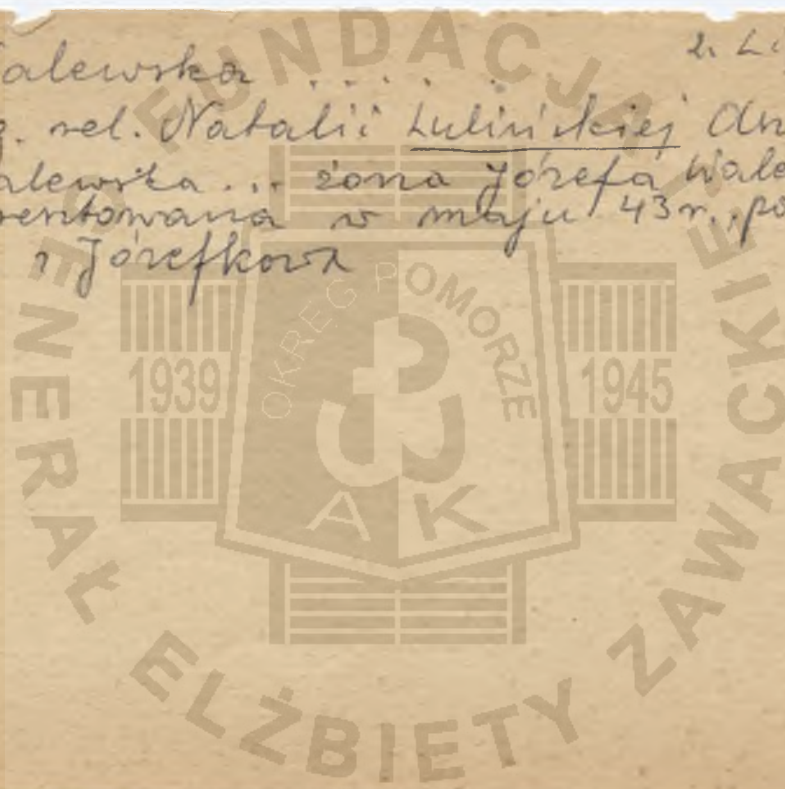 alewska . . . . .
2. L
g. rel. Natalii Lulińskiej
alewska ... żona Józefa Wale
resztowana w maju 43 r., po
z Józefkowa
FUNDACJA
GENERAŁ ELŻBIETY ZAWACKIEJ
OKRĘG POMORZE
1939
1945
AK